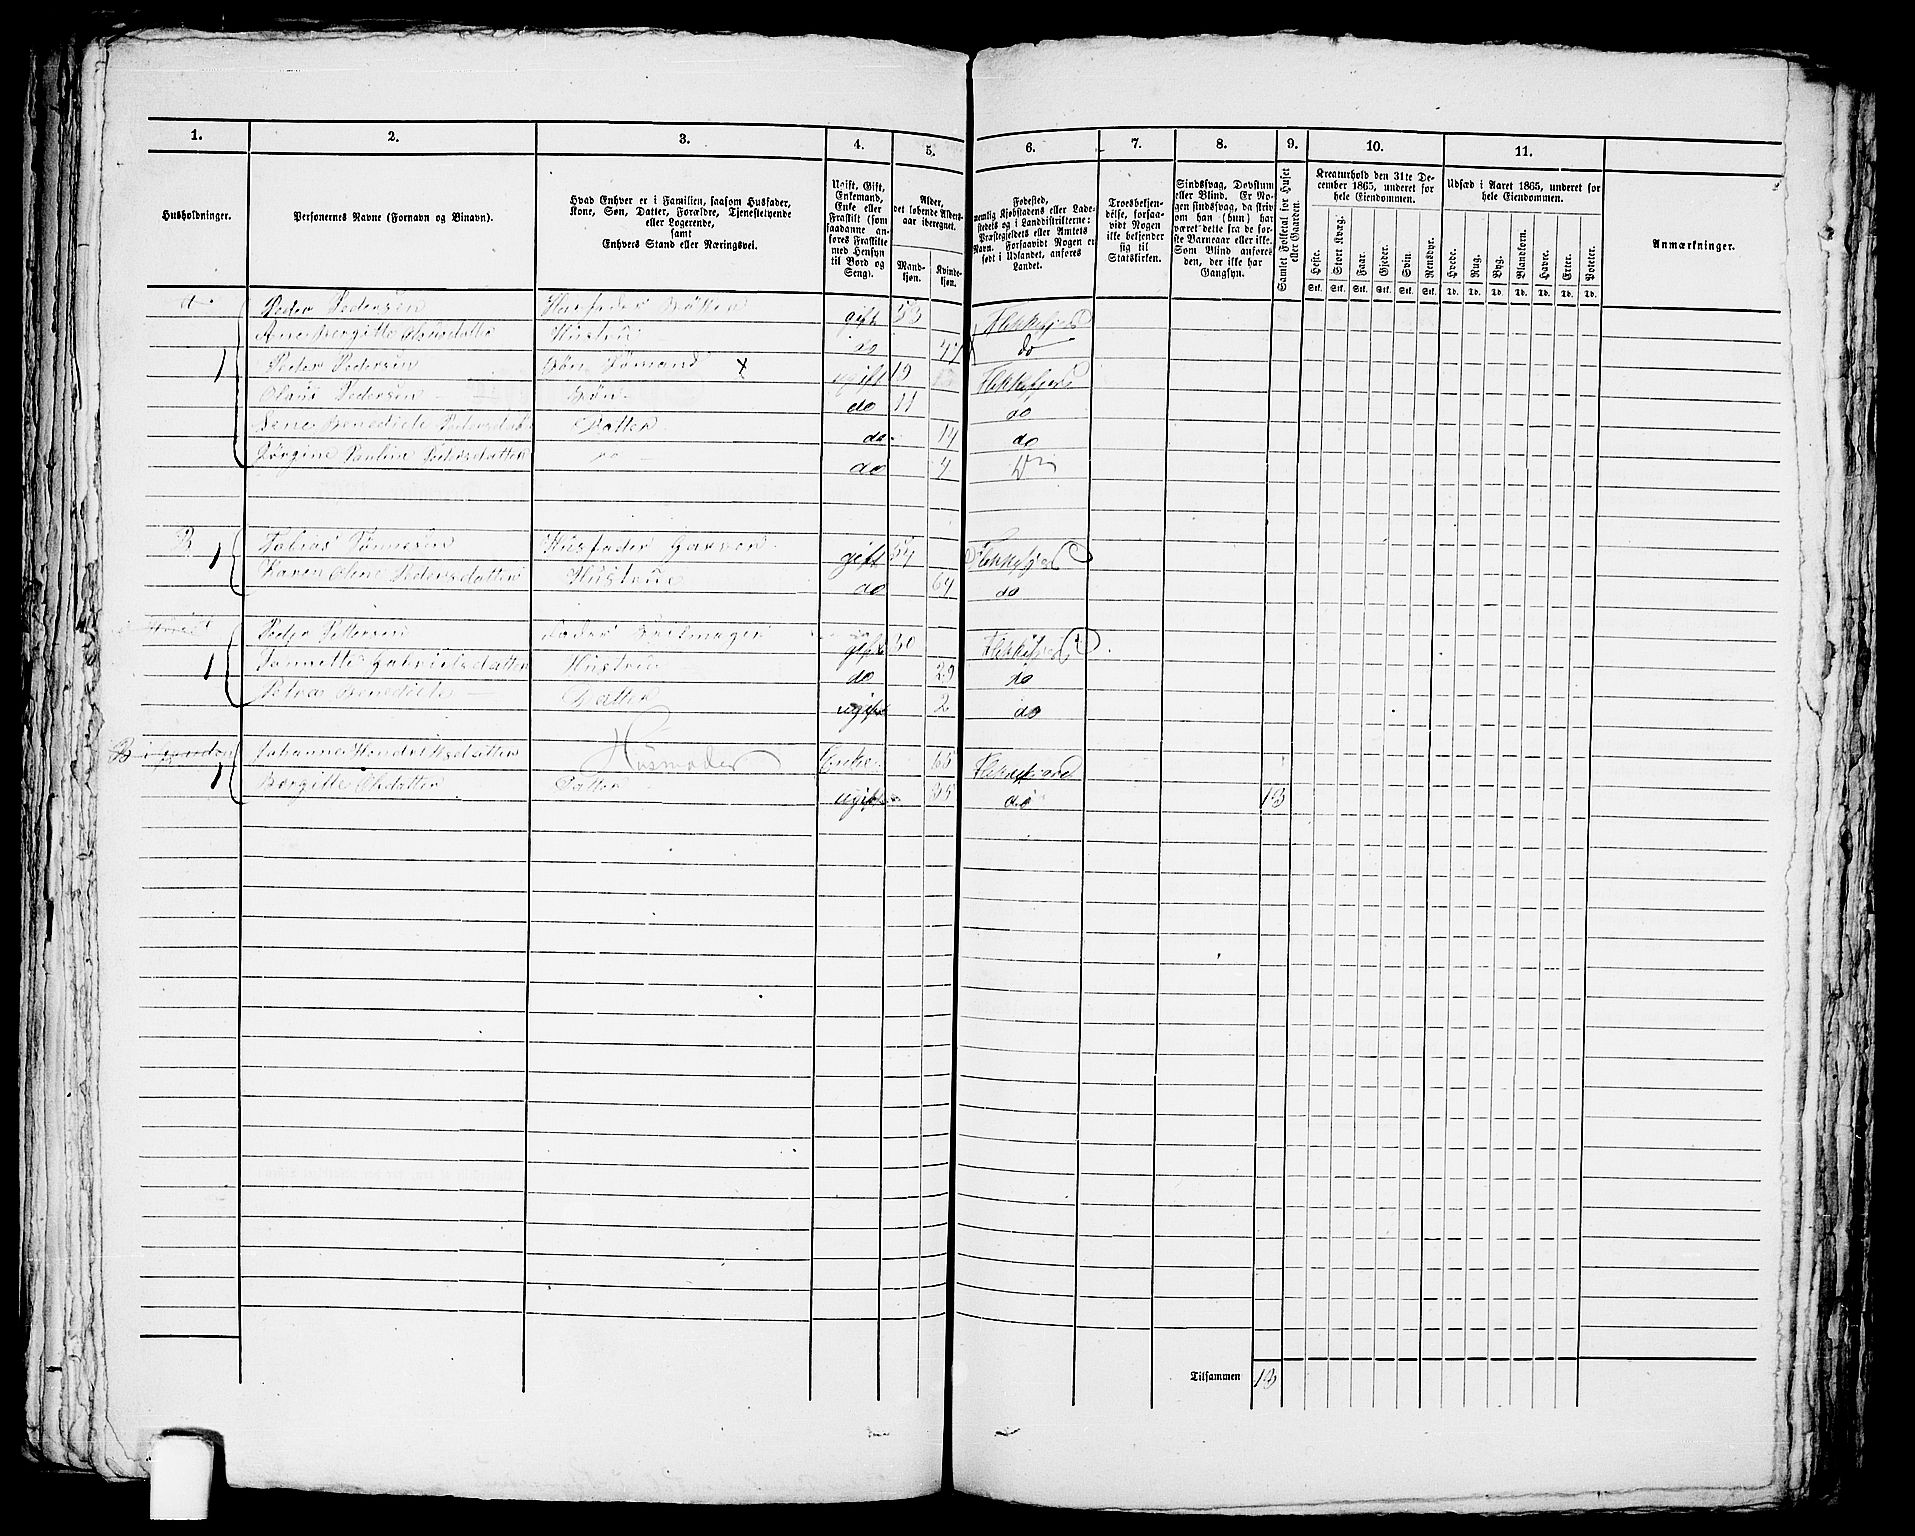 1. 2. 3. 4. 5. 6. 7. 8. 9. 10. 11.
Husholdninger.
Personernes Navne (Fornavn og Binavn).
Hvad Enhver er i Familien, saasom Husfader,
Kone, Søn, Datter, Forældre, Tjenestetyende
eller Logerende,
samt
Enhvers Stand eller Næringsvei.
Ugift, Gift,
Enkemand,
Enke eller
Fraskilt (som
saadanne an-
føres Fraskilte
med Hensyn
til Bord og
Seng).
Alder,
det løbende Alders-
aar iberegnet.
Mand-
kjøn.
Kvinde-
kjøn.
Fødested,
nemlig Kjøbstadens eller Lade-
stedets og i Landdistrikterne:
Præstegjeldets eller Amtets
Navn. Forsaavidt Nogen er
født i Udlandet, anføres
Landet.
Troesbekjen-
delse, forsaa-
vidt Nogen
ikke bekjender
sig til
Statskirken.
Sindssvag, Døvstum
eller Blind. Er No-
gen sindssvag, da skriv
om han (hun) har
været dette fra de før-
ste Barneaar eller ikke.
Som Blind anføres
den, der ikke har
Gangsyn.
Samlet Folketal for Huset
eller Gaarden.
Kreaturhold den 31te De-
cember 1865, underet for
hele Eiendommen.
Heste. Stort Kvæg. Faar. Gjeder. Svin. Rensdyr.
Stk. Stk. Stk. Stk. Stk. Stk.
Udsæd i Aaret 1865, underet for
hele Eiendommen.
Hvede. Rug. Byg. Blandkorn. Havre. Erter. Poteter.
Td. Td. Td. Td. Td. Td. Td.
Anmærkninger.
Peder Pedersen Husfader gift 53 Flekkefjord
Ane Bergitte Hustrue do 47 do
1 Peder Pedersen Søn Sømand x ugift 19 Flekkefjord
Claus Pedersen Søn do 11 do
Benedicte Pedersdatter Datter do 14 do
Jørgine Pauline Pedersdatter do do 7 Do
1 Tobias Tønnesen Husfader Garver gift 54 Flekkefjord
Karen Oline Pedersdatter Hustrue do 64 do
Peder Pettersen gift 30 Flekkefjord
1 Tonnette Gabrielsdatter Hustrue do 29 do
Petrea Benedicte Datter ugift 2 do
Johanne Husmoder Enke 66 Flekkefjord
1 Bergitte Olsdatter Datter ugift 35 do 13
Tilsammen 13